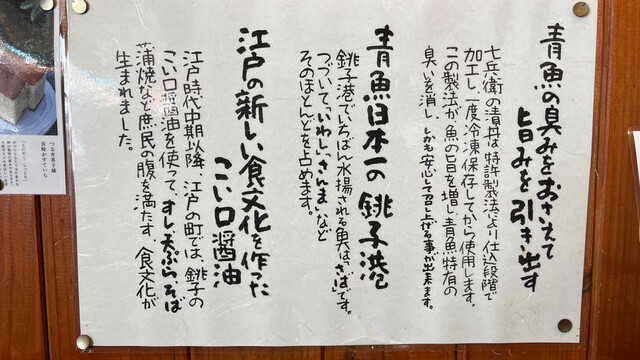 青魚の臭みをおさえて
旨みを引き出す
七兵衛の漬丼は、特許製法により仕込段階で
加工し、一度冷凍保存してから使用します。
この製法が、魚の旨を増し、青魚特有の
臭いを消し、しかも安心して召し上がる事が出来ます。
青魚日本一の銚子港
銚子港でいちばん水揚される魚は、“さば”です。
つづいて、“いわし”、“さんま”など
そのほとんどを占めます。
江戸の新しい食文化を作った
こい口醤油
江戸時代中期以降、江戸の町では、銚子の
こい口醤油を使って、すし、天ぷら、そば
蒲焼など庶民の腹を満たす、食文化が
生まれました。
つる弁菓子舗
長崎かすていら